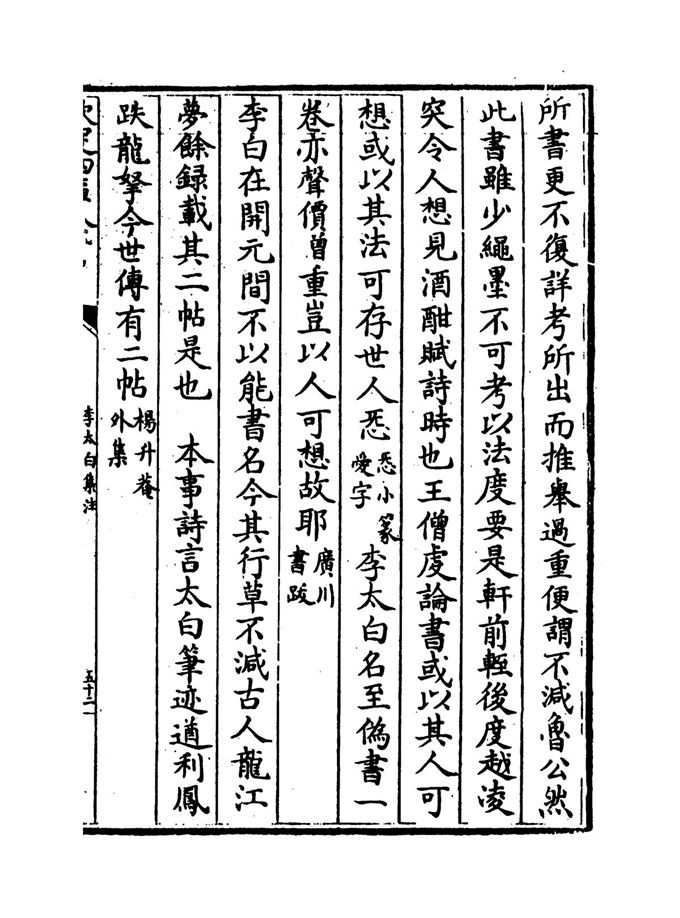 所書更不復詳考所出而推舉過重便謂不減魯公然
此書雖少繩墨不可考以法度要是軒前輊後度越凌
突令人想見酒酣賦詩時也王僧虔論書或以其人可
想或以其法可存世人㤅㤅小篆愛字李太白名至偽書一
卷亦聲價曽重豈以人可想故耶廣川書跋
李白在開元間不以能書名今其行草不減古人龍江
夢餘録載其二帖是也　本事詩言太白筆迹遒利鳳
跌龍拏今世傳有二帖楊升菴外集
李太白集注
五十二